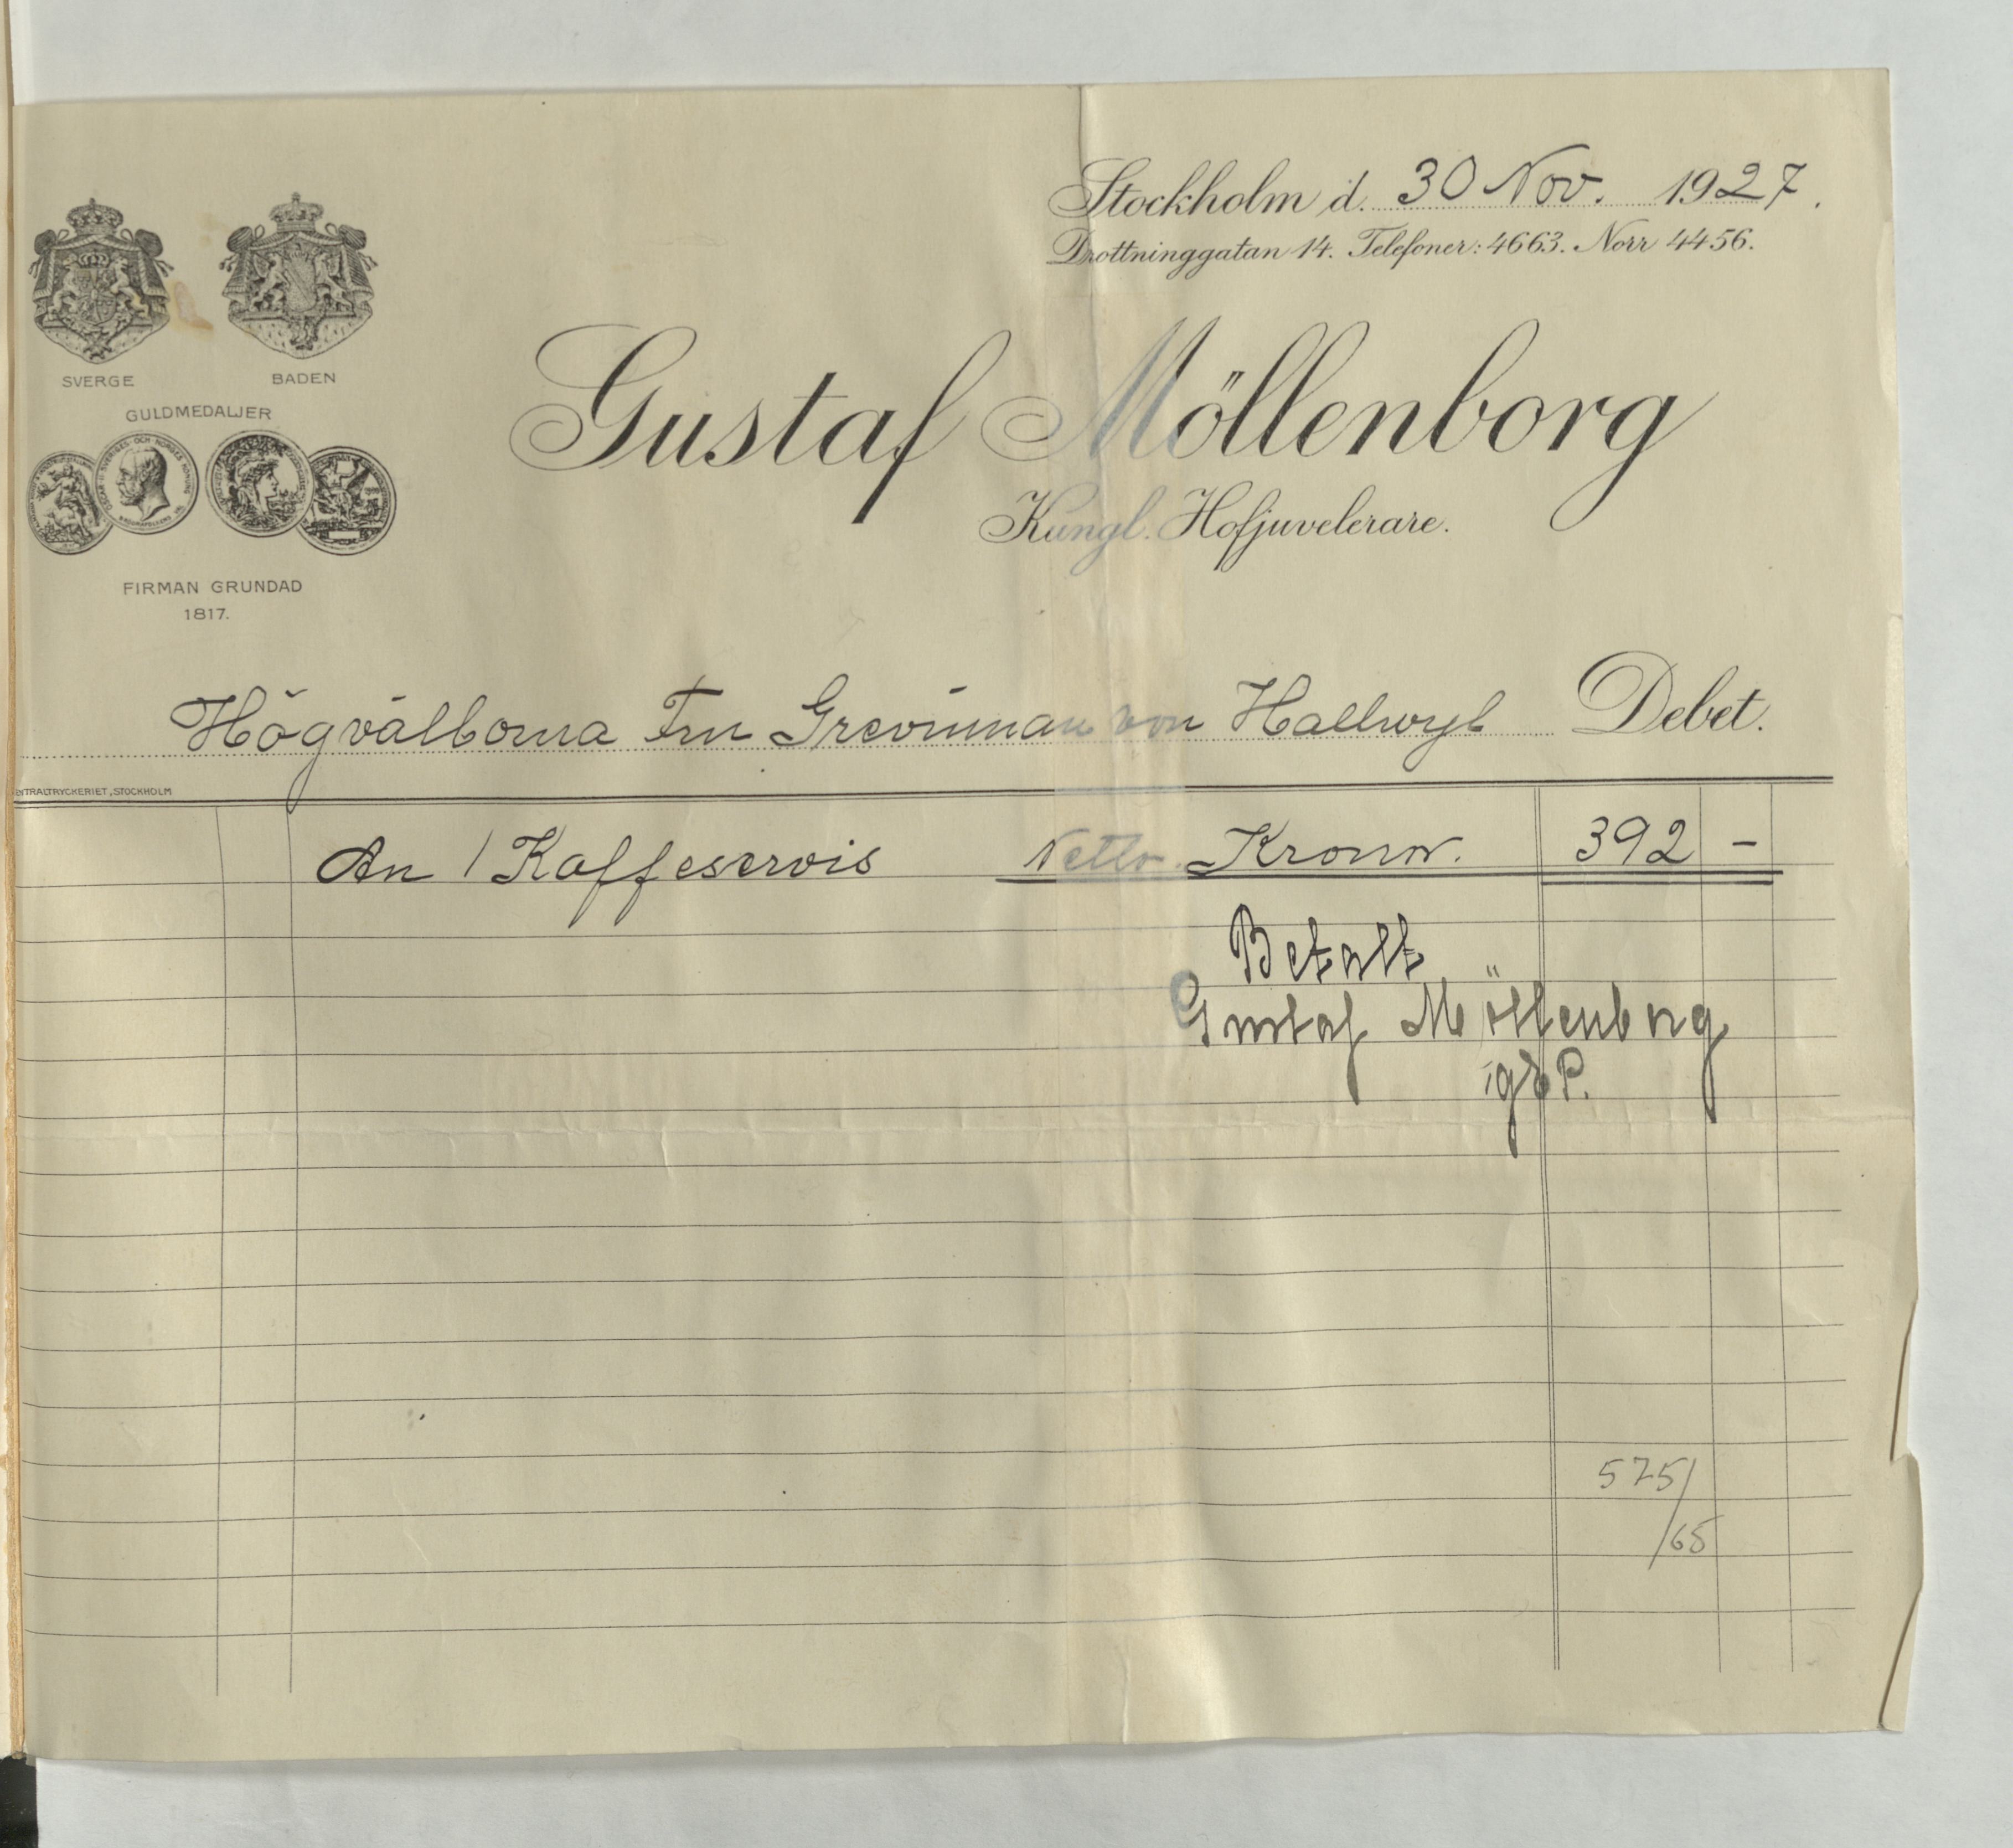 Stockholm d. 30 Nov. 1927.
Drottninggatan 14. Telefoner: 4663. Norr 4456.
SVERGE BADEN
GULDMEDALJER
Gustaf Möllenborg
Kungl. Hofjuvelerare.
FIRMAN GRUNDAD
1817.
Högvälborna Fru Grevinnan von Hallwyl Debet.
ENTRALTRYCKERIET, STOCKHOLM
An 1 Kaffeservis Netto Kronor. 392 -
Betalt
Gustaf Möllenborg
575/
/65